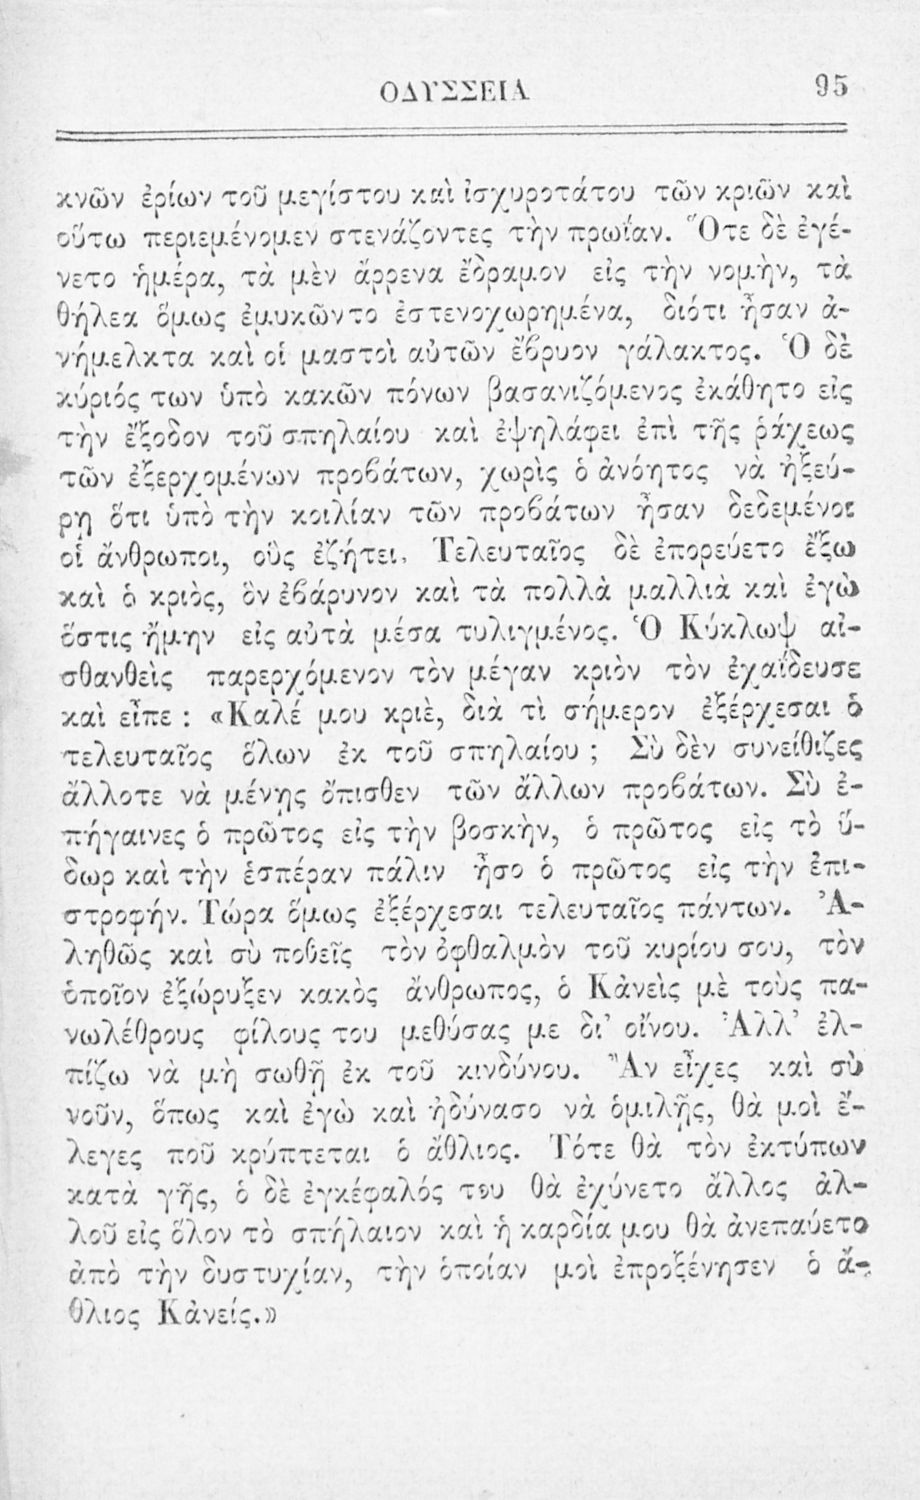 ΟΔΥΣΣΕΙΑ 95
κνῶν ἐρίων τοῦ μεγίστου καὶ ἰσχυροτάτου τῶν κριῶν καὶ
οὕτω περιεμένομεν στενάζοντες τὴν πρωΐαν. Ὅτε δὲ ἐγέ-
νετο ἡμέρα, τὰ μὲν ἄρρενα ἔδραμον εἰς τὴν νομὴν, τὰ
θήλεα ὅμως ἐμυκῶντο ἐστενοχωρημένα, διότι ἦσαν ἀ-
νήμελκτα καὶ οἱ μαστοὶ αὐτῶν ἔβρυον γάλακτος. Ὁ δὲ
κύριός των ὑπὸ κακῶν πόνων βασανιζόμενος ἐκάθητο εἰς
τὴν ἔξοδον τοῦ σπηλαίου καὶ ἐψηλάφει ἐπὶ τῆς ῥάχεως
τῶν ἐξερχομένων προβάτων, χωρὶς ὁ ἀνόητος νὰ ἠξεύ-
ρῃ ὅτι ὑπὸ τὴν κοιλίαν τῶν προβάτων ἦσαν δεδεμένοι
οἱ ἄνθρωποι, οὓς ἐζήτει. Τελευταῖος δὲ ἐπορεύετο ἔξω
καὶ ὁ κριὸς, ὃν ἐβάρυνον καὶ τὰ πολλὰ μαλλιὰ καὶ ἐγὼ
ὅστις ἤμην εἰς αὐτὰ μέσα τυλιγμένος. Ὁ Κύκλωψ αἰ-
σθανθεὶς παρερχόμενον τὸν μέγαν κριὸν τὸν ἐχαΐδευσε
καὶ εἶπε : «Καλέ μου κριὲ, διὰ τὶ σήμερον ἐξέρχεσαι ὁ
τελευταῖος ὅλων ἐκ τοῦ σπηλαίου ; Σὺ δὲν συνείθιζες
ἄλλοτε νὰ μένῃς ὄπισθεν τῶν ἄλλων προβάτων. Σὺ ἐ-
πήγαινες ὁ πρῶτος εἰς τὴν βοσκὴν, ὁ πρῶτος εἰς τὸ ὕ-
δωρ καὶ τὴν ἑσπέραν πάλιν ἦσο ὁ πρῶτος εἰς τὴν ἐπι-
στροφήν. Τώρα ὅμως ἐξέρχεσαι τελευταῖος πάντων. Ἀ-
ληθῶς καὶ σὺ ποθεῖς τὸν ὀφθαλμὸν τοῦ κυρίου σου, τὸν
ὁποῖον ἐξώρυξεν κακὸς ἄνθρωπος, ὁ Κἀνεὶς μὲ τοὺς πα-
νωλέθρους φίλους του μεθύσας με δι’ οἴνου. Ἀλλ’ ἐλ-
πίζω νὰ μὴ σωθῇ ἐκ τοῦ κινδύνου. Ἂν εἶχες καὶ σὺ
νοῦν, ὅπως καὶ ἐγὼ καὶ ἠδύνασο νὰ ὁμιλῇς, θὰ μοὶ ἔ-
λεγες ποῦ κρύπτεται ὁ ἄθλιος. Τότε θὰ τὸν ἐκτύπων
κατὰ γῆς, ὁ δὲ ἐγκέφαλός του θὰ ἐχύνετο ἄλλος ἀλ-
λοῦ εἰς ὅλον τὸ σπήλαιον καὶ ἡ καρδία μου θὰ ἀνεπαύετο
ἀπὸ τὴν δυστυχίαν, τὴν ὁποίαν μοὶ ἐπροξένησεν ὁ ἄ-
θλιος Κἀνείς.»